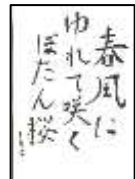 春風に
ゆれて咲く
ぼたん桜